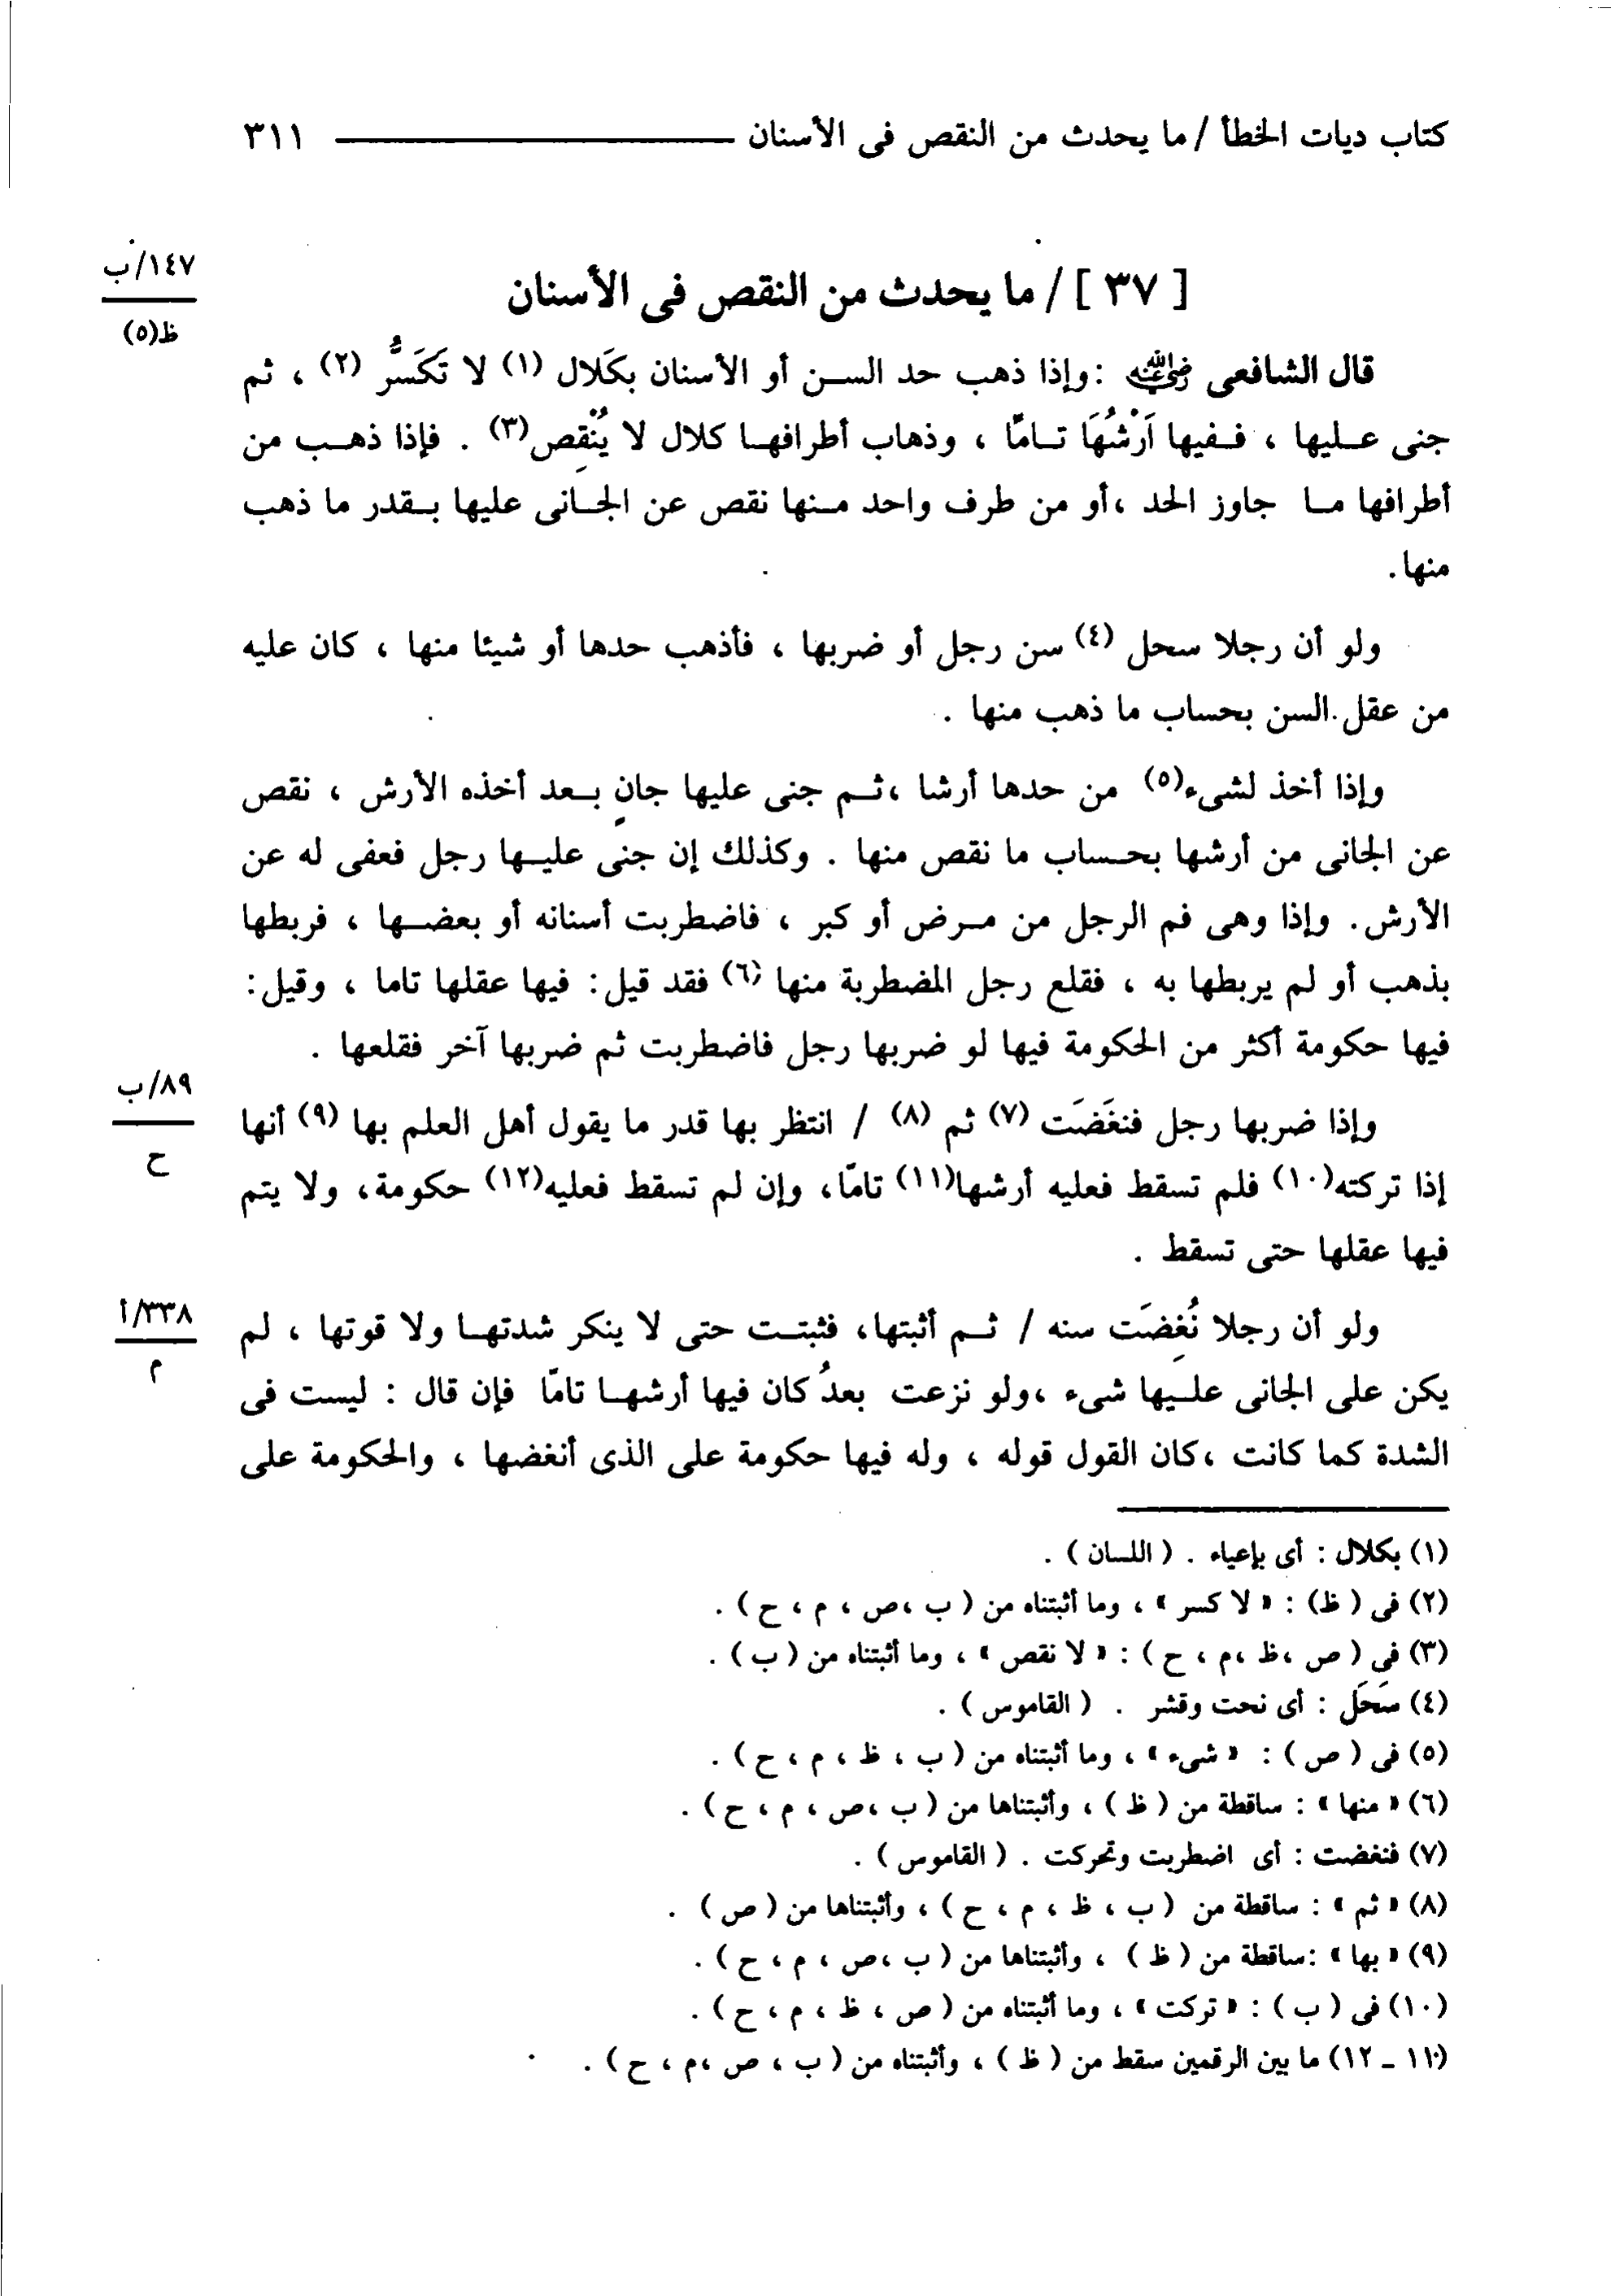 كتاب ديات الخطأ / ما يحدث من النقص فى الأسنان ٣١١
١٤٧/ب
ظ(٥)
[ ٣٧ ] / ما يحدث من النقص فى الأسنان
قال الشافعى رضي الله عنه : وإذا ذهب حد السن أو الأسنان بكَلال (١) لا تَكَسُّر (٢) ، ثم
جنى عليها ، ففيها أَرْشُهَا تامّا ، وذهاب أطرافها كلال لا يُنْقِص(٣) . فإذا ذهب من
أطرافها ما جاوز الحد ،أو من طرف واحد منها نقص عن الجانى عليها بقدر ما ذهب
منها.
ولو أن رجلا سحل (٤) سن رجل أو ضربها ، فأذهب حدها أو شيئا منها ، كان عليه
من عقل السن بحساب ما ذهب منها .
وإذا أخذ لشىء(٥) من حدها أرشا ،ثم جنى عليها جانٍ بعد أخذه الأرش ، نقص
عن الجانى من أرشها بحساب ما نقص منها . وكذلك إن جنى عليها رجل فعفى له عن
الأرش. وإذا وهى فم الرجل من مرض أو كبر ، فاضطربت أسنانه أو بعضها ، فربطها
بذهب أو لم يربطها به ، فقلع رجل المضطربة منها (٦) فقد قيل: فيها عقلها تاما ، وقيل:
فيها حكومة أكثر من الحكومة فيها لو ضربها رجل فاضطربت ثم ضربها آخر فقلعها .
٨٩/ب
ح
وإذا ضربها رجل فنغَضَت (٧) ثم (٨) / انتظر بها قدر ما يقول أهل العلم بها (٩) أنها
إذا تركته(١٠) فلم تسقط فعليه أرشها(١١) تامّا، وإن لم تسقط فعليه(١٢) حكومة، ولا يتم
فيها عقلها حتى تسقط .
٣٣٨/أ
م
ولو أن رجلا نُغِضَت سنه / ثم أثبتها، فثبتت حتى لا ينكر شدتها ولا قوتها ، لم
يكن على الجانى عليها شىء ،ولو نزعت بعدُ كان فيها أرشها تامّا فإن قال : ليست فى
الشدة كما كانت ،كان القول قوله ، وله فيها حكومة على الذى أنغضها ، والحكومة على
(١) بكلال : أى بإعياء . ( اللسان ) .
(٢) فى ( ظ) : « لا كسر » ، وما أثبتناه من ( ب ،ص ، م ، ح ) .
(٣) فى ( ص ،ظ ،م ، ح ) : « لا نقص » ، وما أثبتناه من ( ب ) .
(٤) سَحَل : أى نحت وقشر . ( القاموس ) .
(٥) فى ( ص ) : « شىء » ، وما أثبتناه من ( ب ، ظ ، م ، ح ) .
(٦) « منها » : ساقطة من ( ظ ) ، وأثبتناها من ( ب ،ص ، م ، ح ) .
(٧) فنغضت : أى اضطربت وتحركت . ( القاموس ) .
(٨) « ثم » : ساقطة من ( ب ، ظ ، م ، ح ) ، وأثبتناها من ( ص ) .
(٩) « بها » :ساقطة من ( ظ ) ، وأثبتناها من ( ب ،ص ، م ، ح ) .
(١٠) فى ( ب ) : « تركت » ، وما أثبتناه من ( ص ، ظ ، م ، ح ) .
(١١ - ١٢) ما بين الرقمين سقط من ( ظ ) ، وأثبتناه من ( ب ، ص ،م ، ح ) .